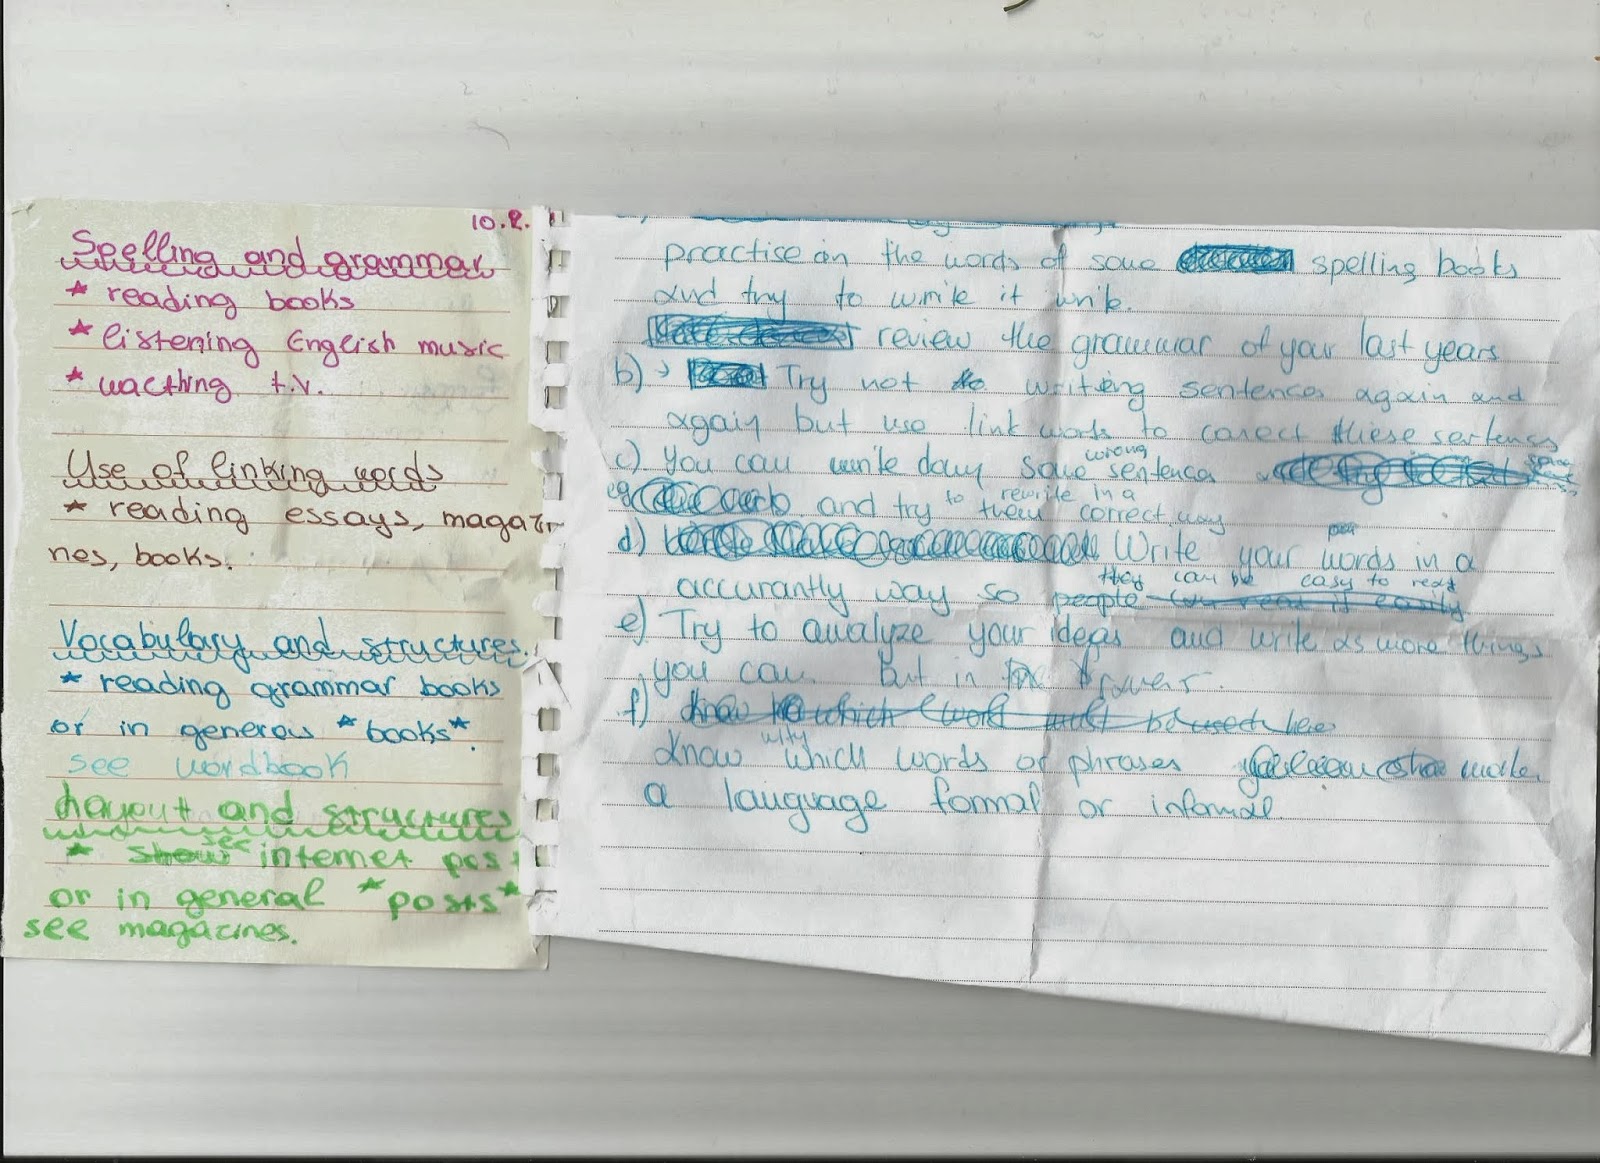 10.2.
Spelling and grammar
* reading books
* listening English music
* wacthing t.v.
Use of linking words
* reading essays, magazi
nes, books.
Vocabulary and structures.
* reading grammar books
or in general *books*.
see wordbook
Layout and structures
* show see internet pos
or in general *posts*
see magazines.
practise on the words of some spelling books
and try to write it
review the grammar of your last years
b) Try not to writing sentences again and
again but use link words to corect these sentences
c) You can write down some wrong sentences
eg and try to rewrite them in a correct way
d) Write your words in a
accurantly way so people they can be easy to read
e) Try to analyze your ideas and write as more things
you can. But in
f) know which word must be used
know why which words or phrases make
a language formal or informal.